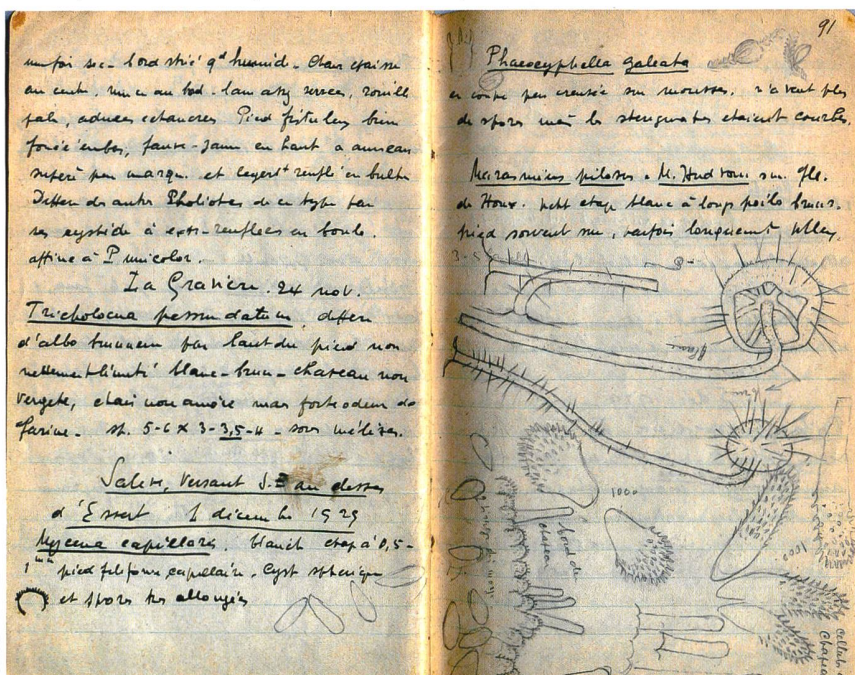 un foi sec - bord strié qd humid - Chair épaisse
au cent, mince au bord - lam assz serrées,
pale, adnées echancrées Pied fistuleux bien
foncé en bas, fauve-jaun en haut a anneau
supere peu marqu. et legert renflé en bulbe
Differe des autres Pholiotes de ce type par
ses cystide à extr-renflees en boule.
affine à P unicolor. -
La Gravière. 24 nov.
Tricholoma pessundatum, differe
d'albo brunneum par haut du pied non
nettement limité blanc-brun - chapeau non
vergeté, chair non amère mas forte odeur de
farine - sp. 5-6 x 3-3,5-4 - sous mélèzes.
Salève, Versant S.E au dessus
d'Essert 1 décembre 1929
Mycena capillaris. blanch chap à 0,5-
1 mm pied filiforme capillaire. Cyst spherique
et spores tres allongées
91
Phaeocyphella galeata
en coupe peu creusée sur mousses. n'avait plus
de spores mais les sterigmates etaient courbes.
Marasmius pilosus = M. Hudsoni sur fle.
de Houx. petit chap blanc à longs poils bruns.
pied souvent nu, parfois longuement
blanc
brun
1000
bord du
chapeau
1000
cellules
Chapeau